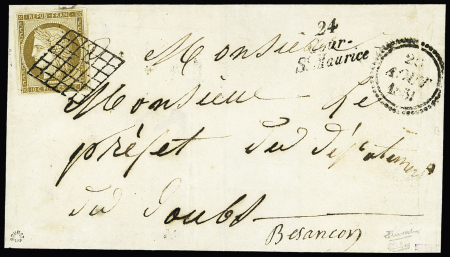 REPUB. FRANC.
24
Cour-
St Maurice
25
AOUT
1851
Monsieur
Monsieur Le
préfet du département
du Doubs
Besançon